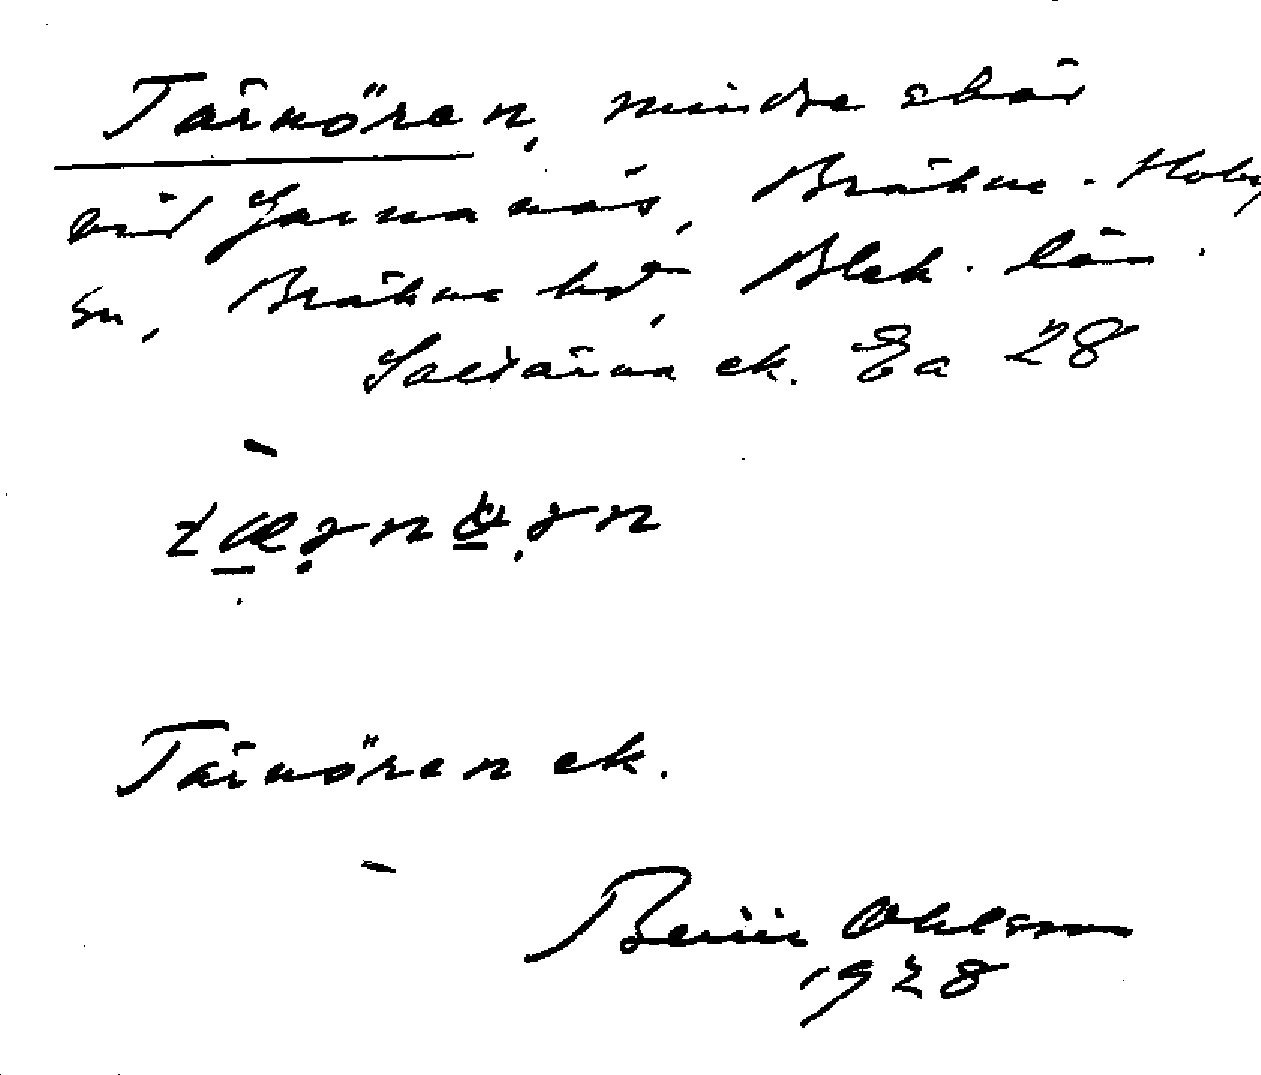 Tärnören, mindre skär
vid Garnanäs, Bräkne-Hoby
sn, Bräkne hd, Blek. län.
Saltärna ek. Ea 28
Tärnören ek.
Bertil Ohlsson
1928